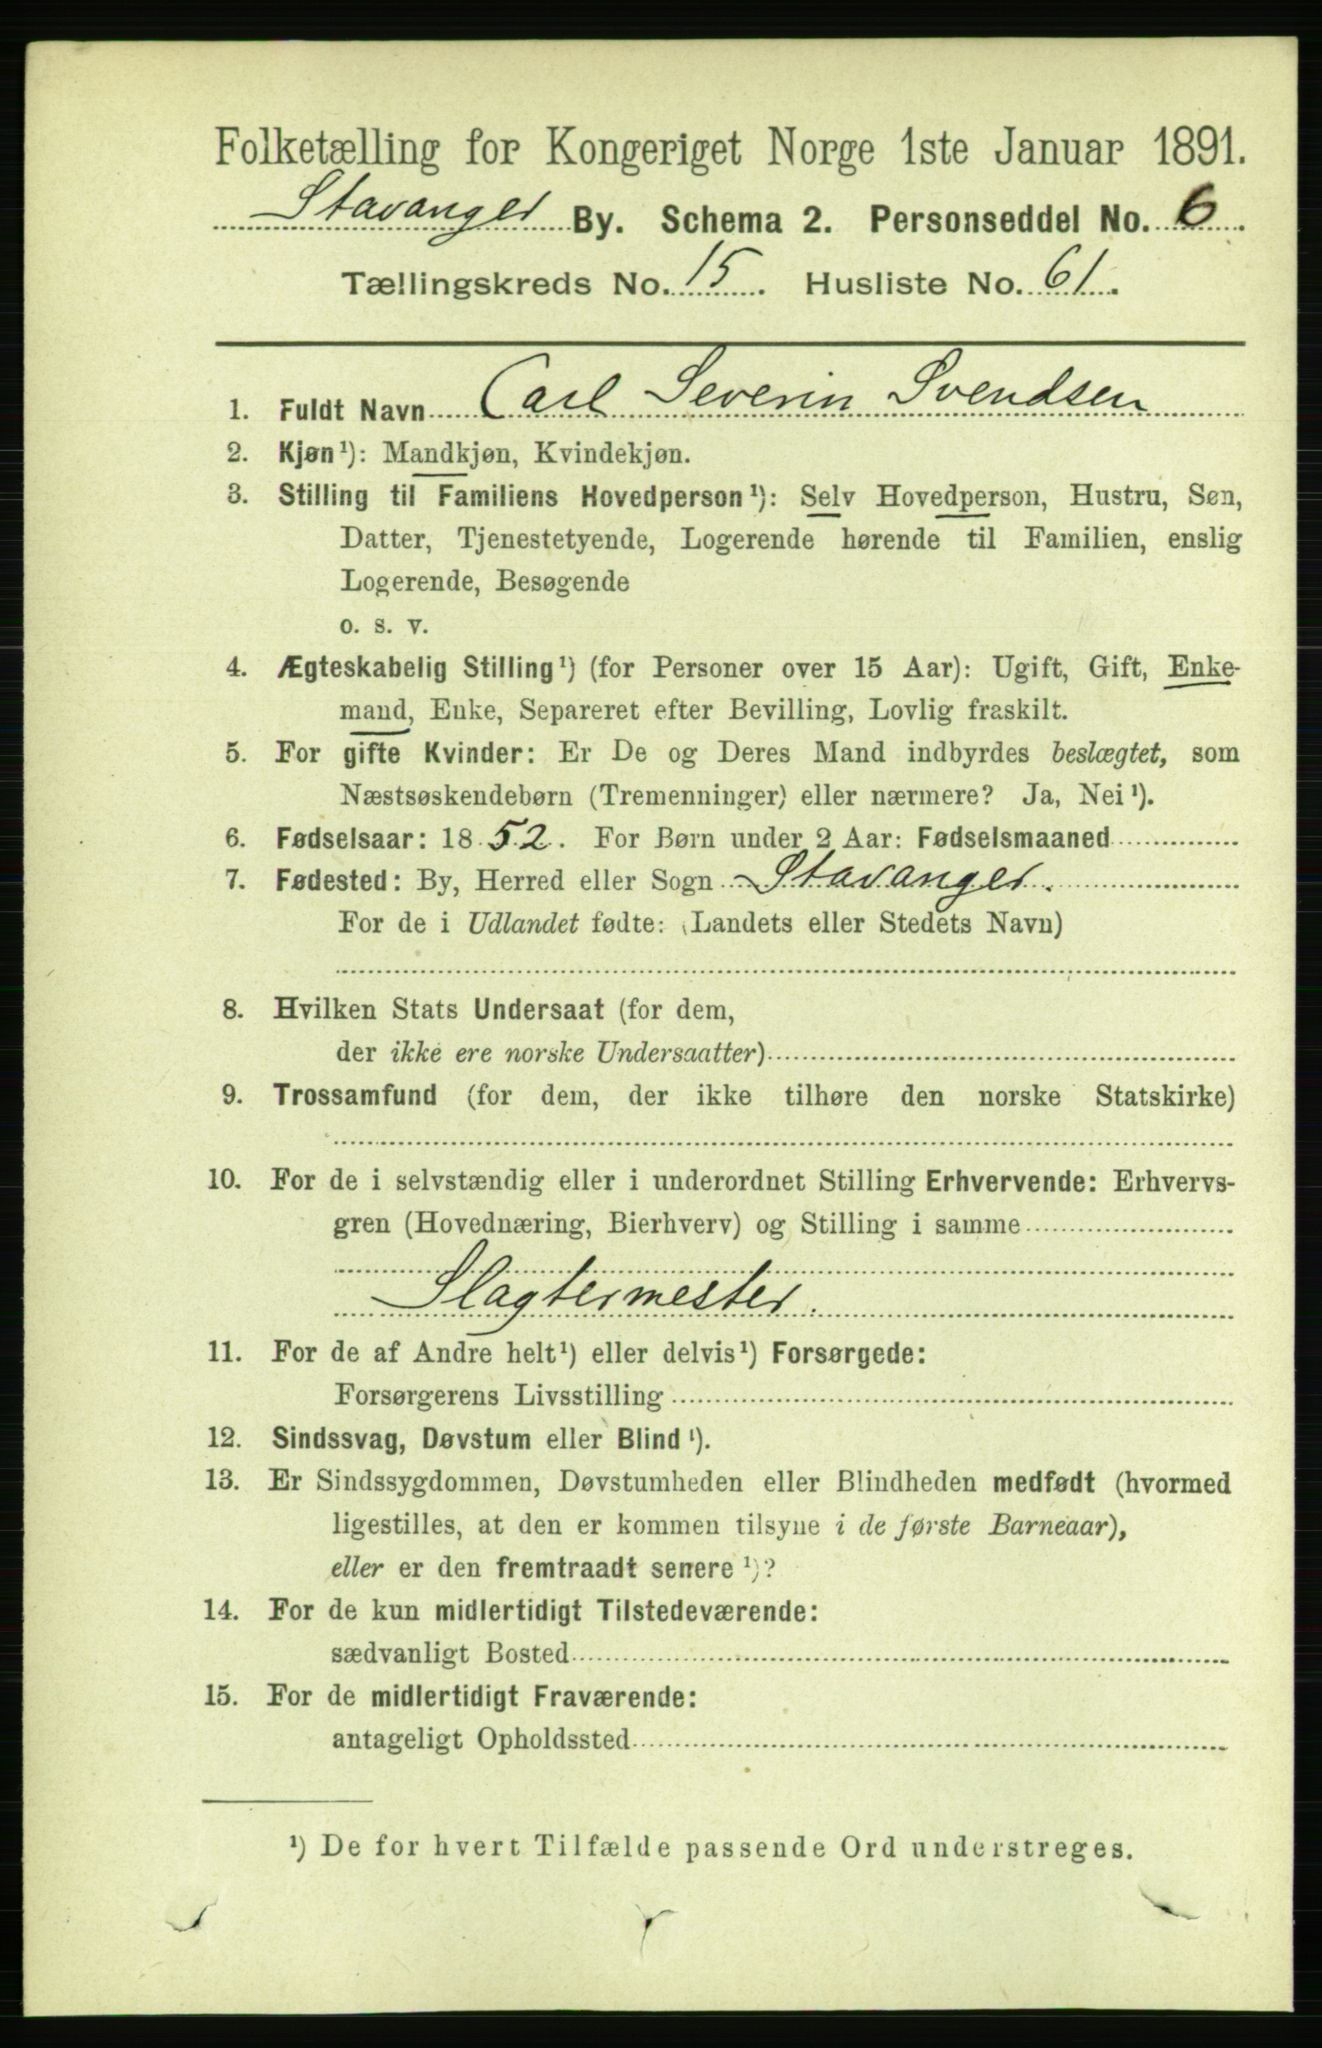 Folketælling for Kongeriget Norge 1ste Januar 1891.
Stavanger By. Schema 2. Personseddel No. 6.
Tællingskreds No. 15. Husliste No. 61.
1. Fuldt Navn Carl Severin Svendsen
2. Kjøn¹): Mandkjøn, Kvindekjøn.
3. Stilling til Familiens Hovedperson¹): Selv Hovedperson, Hustru, Søn,
Datter, Tjenestetyende, Logerende hørende til Familien, enslig
Logerende, Besøgende
o. s. v.
4. Ægteskabelig Stilling¹) (for Personer over 15 Aar): Ugift, Gift, Enke-
mand, Enke, Separeret efter Bevilling, Lovlig fraskilt.
5. For gifte Kvinder: Er De og Deres Mand indbyrdes beslægtet, som
Næstsøskendebørn (Tremenninger) eller nærmere? Ja, Nei¹).
6. Fødselsaar: 1852. For Børn under 2 Aar: Fødselsmaaned
7. Fødested: By, Herred eller Sogn Stavanger.
For de i Udlandet fødte: (Landets eller Stedets Navn)
8. Hvilken Stats Undersaat (for dem,
der ikke ere norske Undersaatter)
9. Trossamfund (for dem, der ikke tilhøre den norske Statskirke)
10. For de i selvstændig eller i underordnet Stilling Erhvervende: Erhvervs-
gren (Hovednæring, Bierhverv) og Stilling i samme
Slagtermester.
11. For de af Andre helt¹) eller delvis¹) Forsørgede:
Forsørgerens Livsstilling
12. Sindssvag, Døvstum eller Blind¹).
13. Er Sindssygdommen, Døvstumheden eller Blindheden medfødt (hvormed
ligestilles, at den er kommen tilsyne i de første Barneaar),
eller er den fremtraadt senere¹)?
14. For de kun midlertidigt Tilstedeværende:
sædvanligt Bosted
15. For de midlertidigt Fraværende:
antageligt Opholdssted
¹) De for hvert Tilfælde passende Ord understreges.